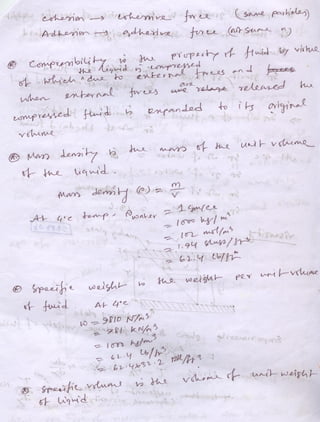 cohesion → cohesive force (same particles)
Adhesion → Adhesive force (not same ")
⊛ Compressibility is the property of fluid by virtue
the liquid is compressed
of which due to external forces and
when external forces are released the
compressed fluid is expanded to its original
volume
⊛ Mass density is the mass of the unit volume
of the liquid.
Mass density (ρ) = m/V
At 4°c temp, ρwater = 1 gm/cc
= 1000 kg/m³
= 102 msl/m³
= 1.94 slugs/ft³
= 62.4 lb/ft³
⊛ Specific weight is the weight per unit volume
of fluid At 4°c
w = 9810 N/m³
= 9.81 kN/m³
= 1000 kg/m³
= 62.4 lb/ft³
= 62.4x32.2
⊛ Specific volume is the volume of unit weight
of liquid